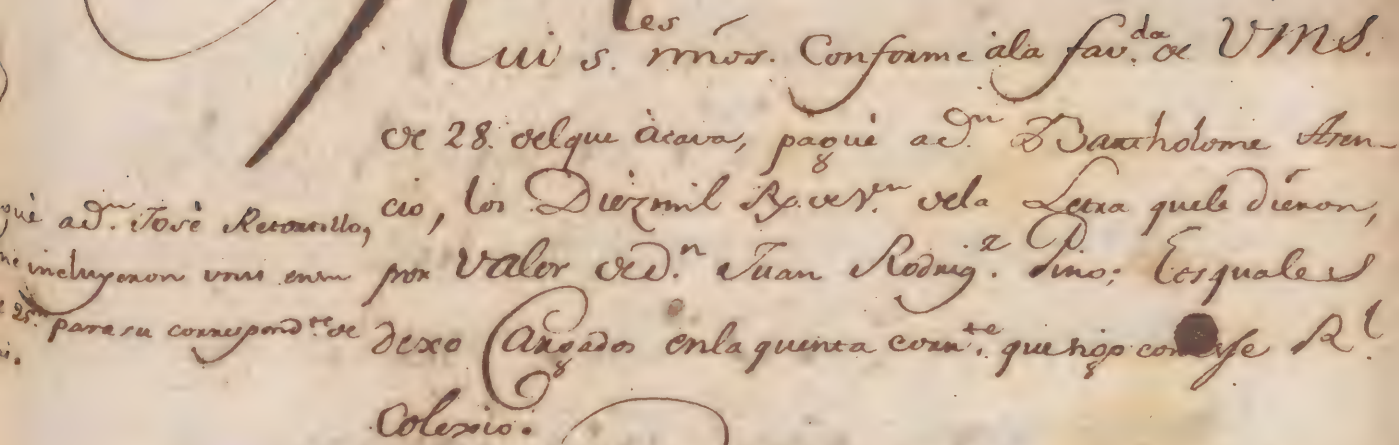 Mui s.les mios. Conforme àla fav.da de VMS.
de 28. delque àcava, paguè ad.n Bartholome Aren-
cio, los Diezmil Rs. de V.n dela Letra quele dieron,
por Valor ded.n Juan Rodrig.z Pino; Losquales
dexo Cargados enla quenta corr.te que sigo con esse R.l
Colexio.
guè ad.n Josè Retortillo,
me incluyeron vms en su
25. para su correspond.te de